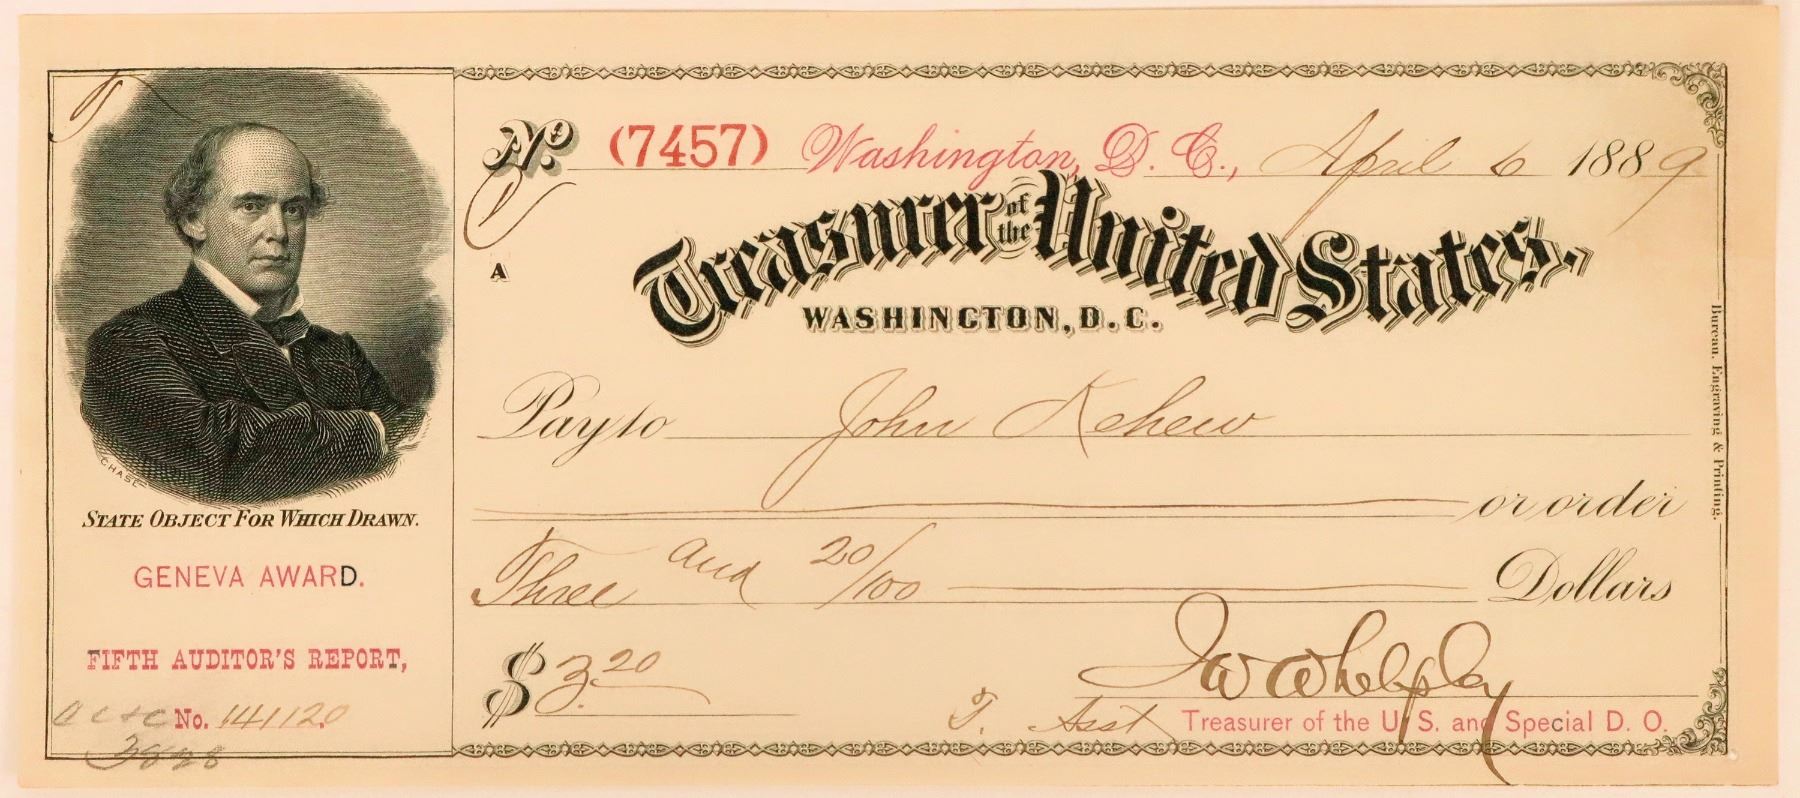 No. (7457) Washington, D. C., April 6 1889
A
Treasurer of the United States.
WASHINGTON, D. C.
Pay to John Kehew
or order
Three and 20/100 Dollars
$3.20
J W Whelpley
Asst Treasurer of the U. S. and Special D. O.
Bureau, Engraving & Printing.
CHASE
STATE OBJECT FOR WHICH DRAWN.
GENEVA AWARD.
FIFTH AUDITOR'S REPORT,
No. 141120